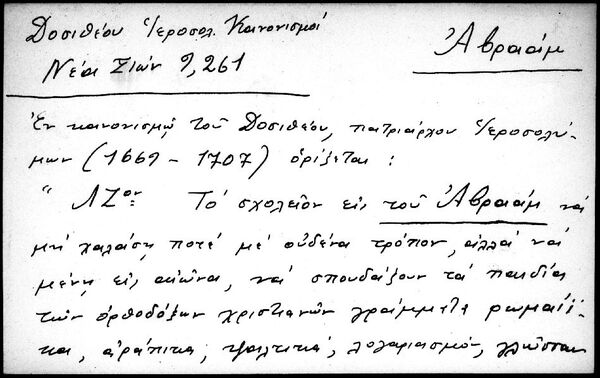 Δοσιθέου Ἱεροσολ. Κανονισμοί
Ἀβραάμ
Νέα Σιών 9, 261
Ἐν κανονισμῷ τοῦ Δοσιθέου, πατριάρχου Ἱεροσολύ-
μων (1669 - 1707) ὁρίζεται :
" ΛΖον Τό σχολεῖον εἰς τοῦ Ἀβραάμ νά
μή χαλάσῃ ποτέ μέ οὐδένα τρόπον, ἀλλά νά
μένῃ εἰς αἰῶνα, νά σπουδάζουν τά παιδία
τῶν ὀρθοδόξων χριστιανῶν γράμματα ρωμαίϊ-
κα, ἀράπικα, ψαλτικά, λογαριασμόν, γλῶσσαν